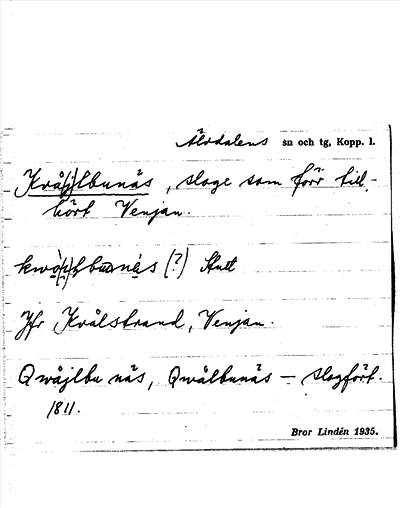 Älvdalens sn och tg, Kopp. l.
Kvå(j)lbunäs, sloge som förr till-
hört Venjan.
(?)
Jfr Kvålstrand, Venjan.
Qwåjlbu näs, Qwålbunäs – slogfört.
1811.
Bror Lindén 1935.